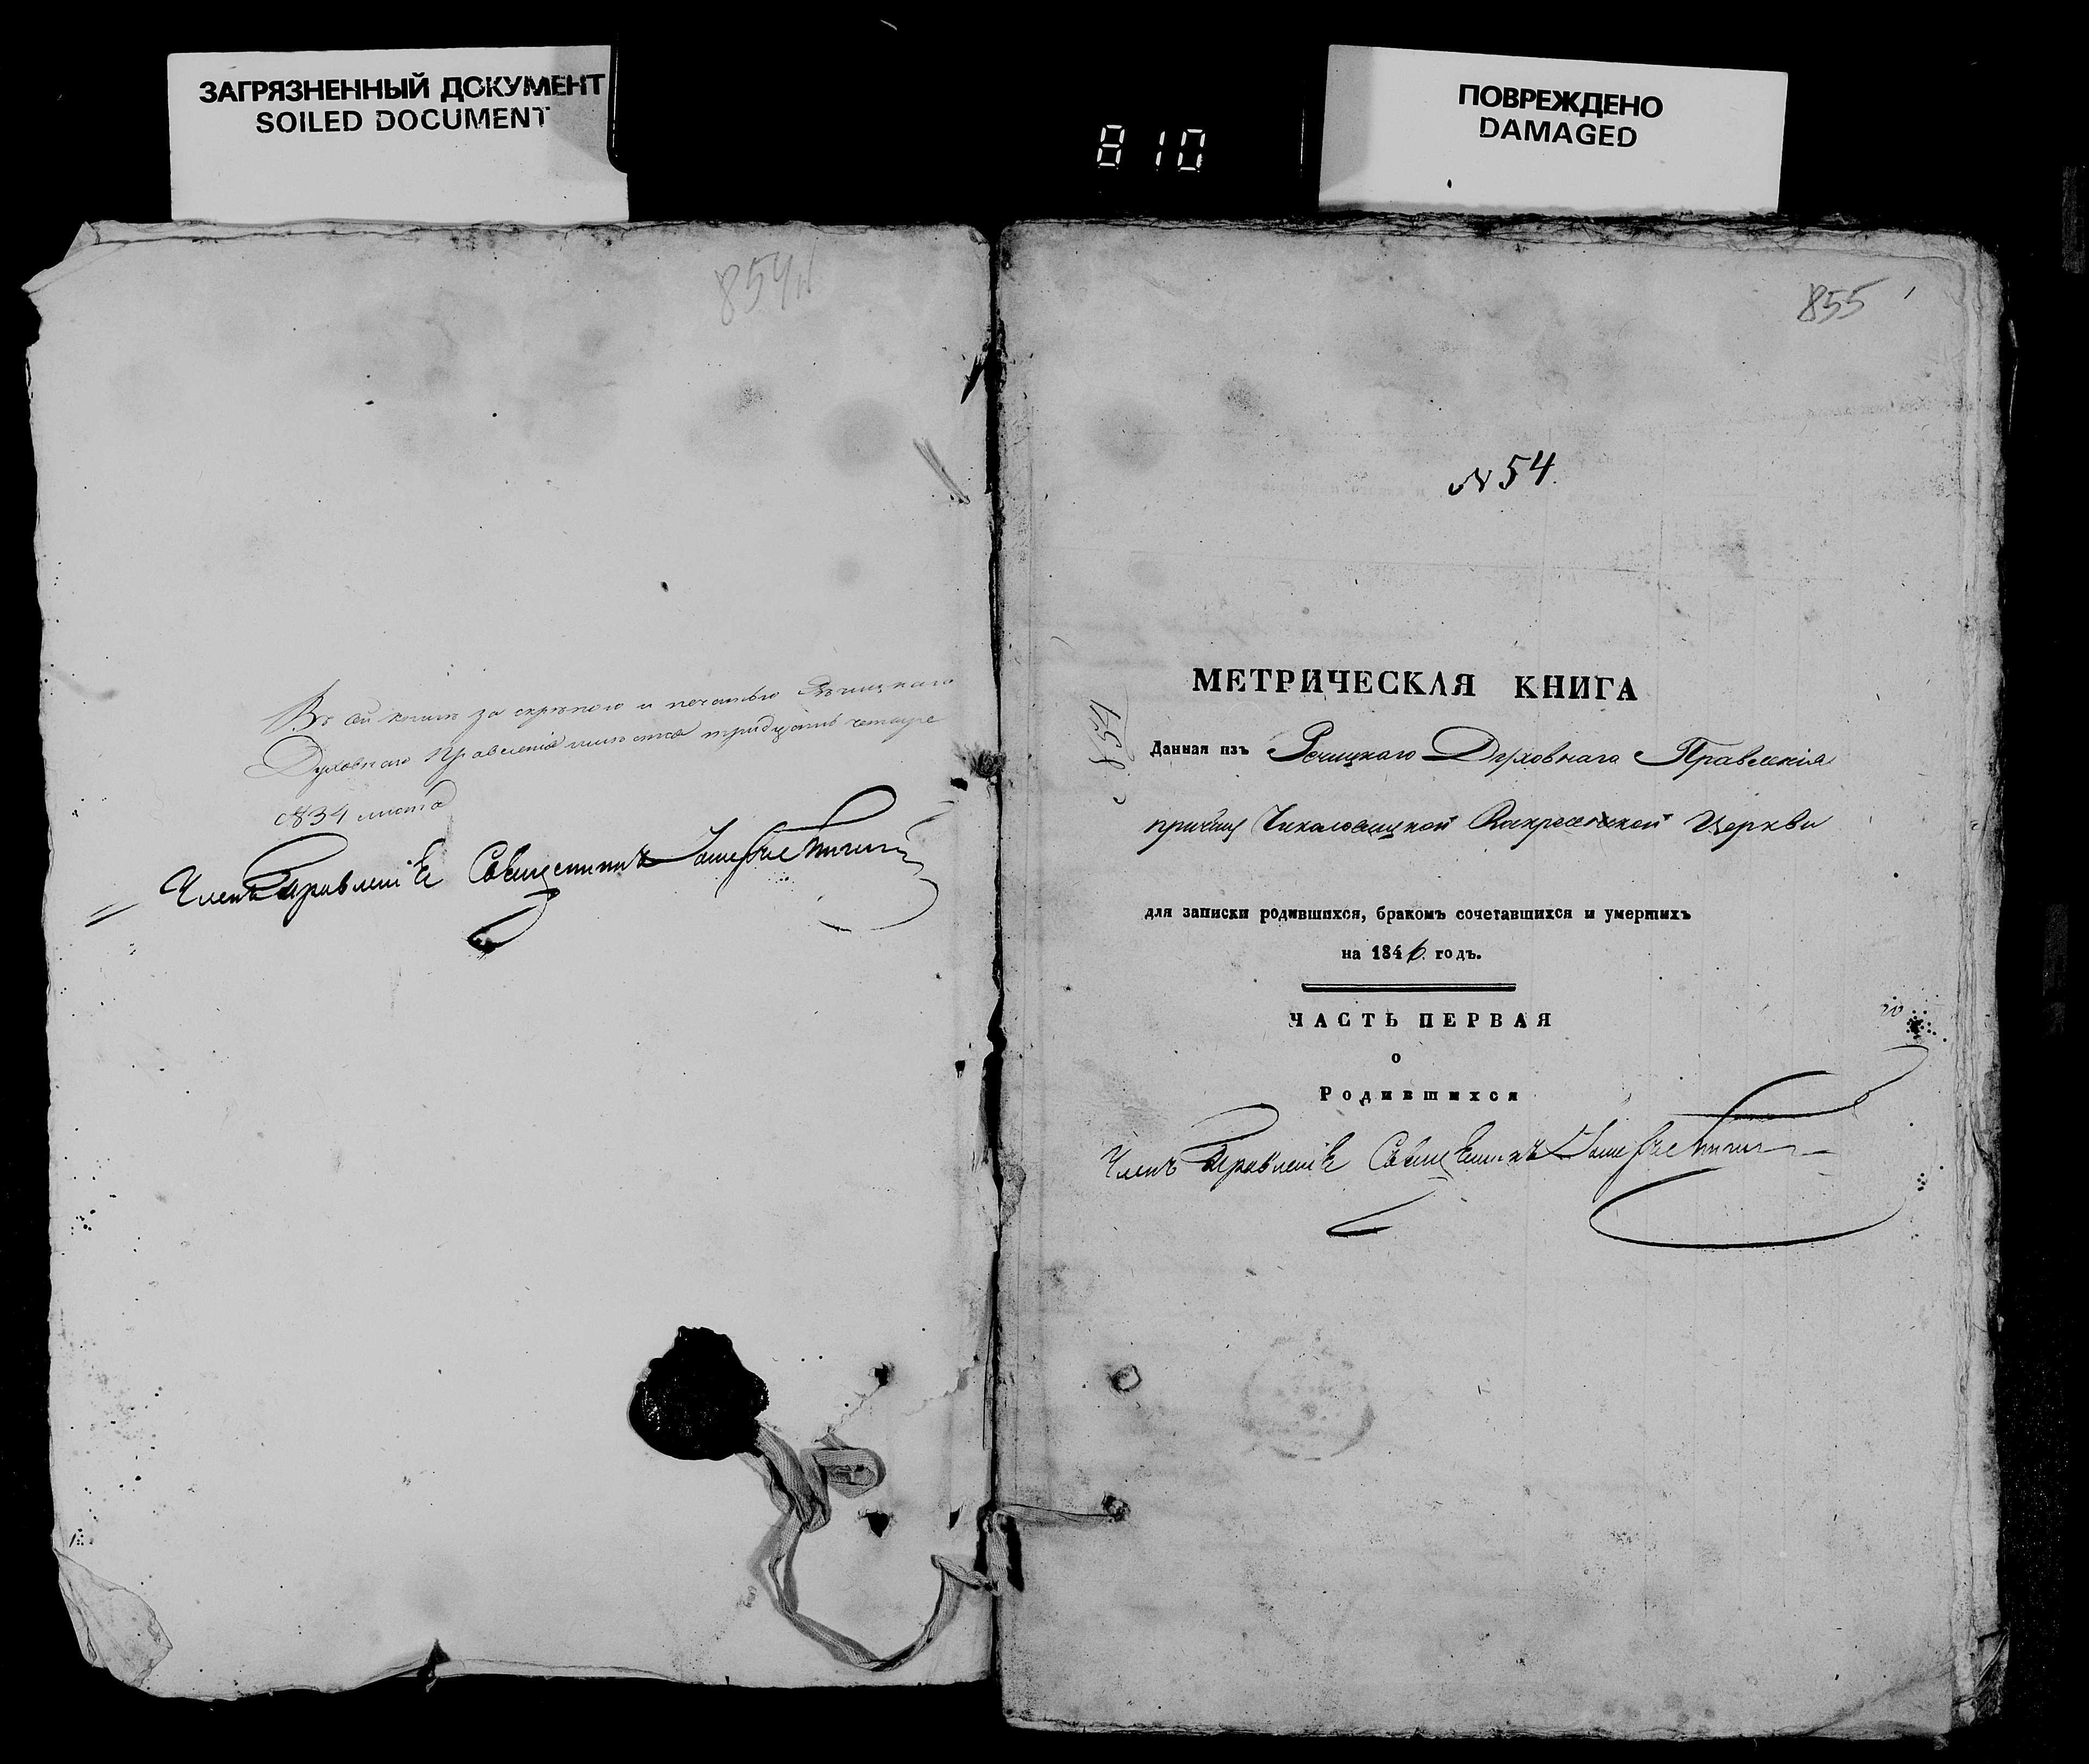 ЗАГРЯЗНЕННЫЙ ДОКУМЕНТ
SOILED DOCUMENT
810
ПОВРЕЖДЕНО
DAMAGED
854
Въ сей книгѣ за скрѣпою и печатью Рѣчицкаго
Духовнаго Правленія листовъ тридцать четыре
34 листа
Членъ Правленія Священникъ
855
N 54.
МЕТРИЧЕСКАЯ КНИГА
Данная изъ Речицкаго Духовнаго Правленія
причту Церкви
для записки родившихся, бракомъ сочетавшихся и умершихъ
на 1846. годъ.
ЧАСТЬ ПЕРВАЯ
о
Родившихся
Членъ Правленія Священникъ